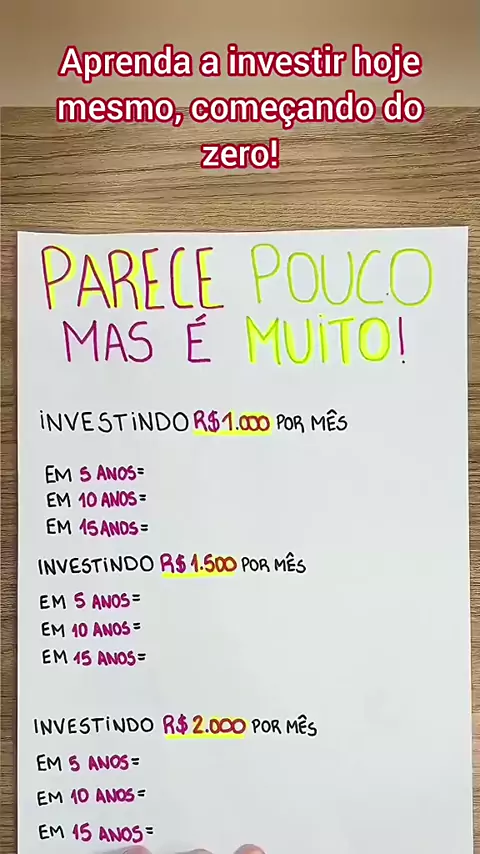 Aprenda a investir hoje
mesmo, começando do
zero!
PARECE POUCO
MAS É MUITO!
INVESTINDO R$1.000 POR MÊS
EM 5 ANOS=
EM 10 ANOS=
EM 15 ANOS=
INVESTINDO R$ 1.500 POR MÊS
EM 5 ANOS=
EM 10 ANOS=
EM 15 ANOS=
INVESTINDO R$ 2.000 POR MÊS
EM 5 ANOS=
EM 10 ANOS=
EM 15 ANOS=